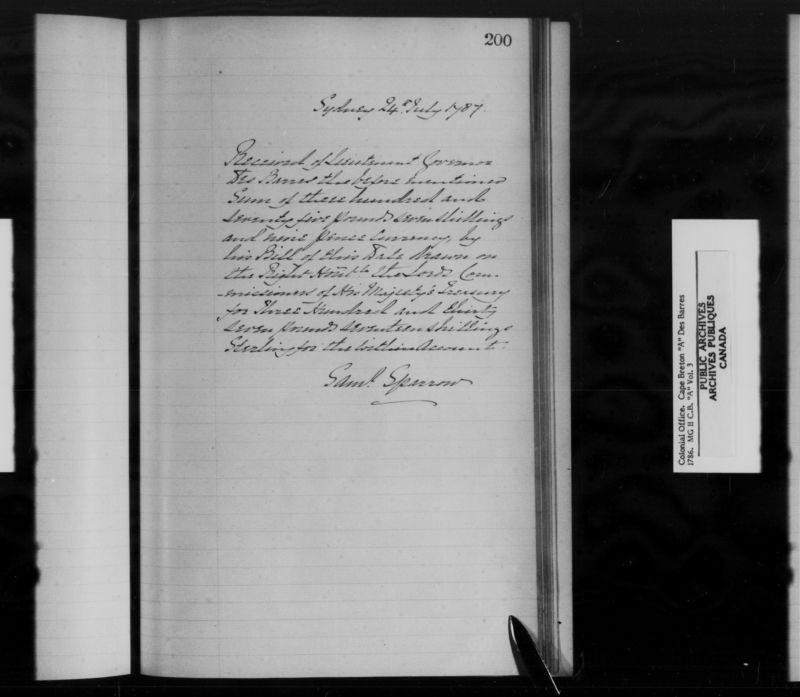 200
Sydney 24th July 1787.
Received of Lieutenant Governor
Des Barres the before mentioned
Sum of three hundred and
seventy five pounds seven shillings
and nine pence Currency, by
his Bill of this Date drawn on
the Right Honble the Lords Com-
-missioners of His Majesty's Treasury
for Three Hundred and thirty
seven pounds seventeen shillings
Sterling for the within Account.
Saml. Sparrow
Colonial Office. Cape Breton "A" Des Barres
1786. MG II C.B. "A" Vol. 3
PUBLIC ARCHIVES
ARCHIVES PUBLIQUES
CANADA